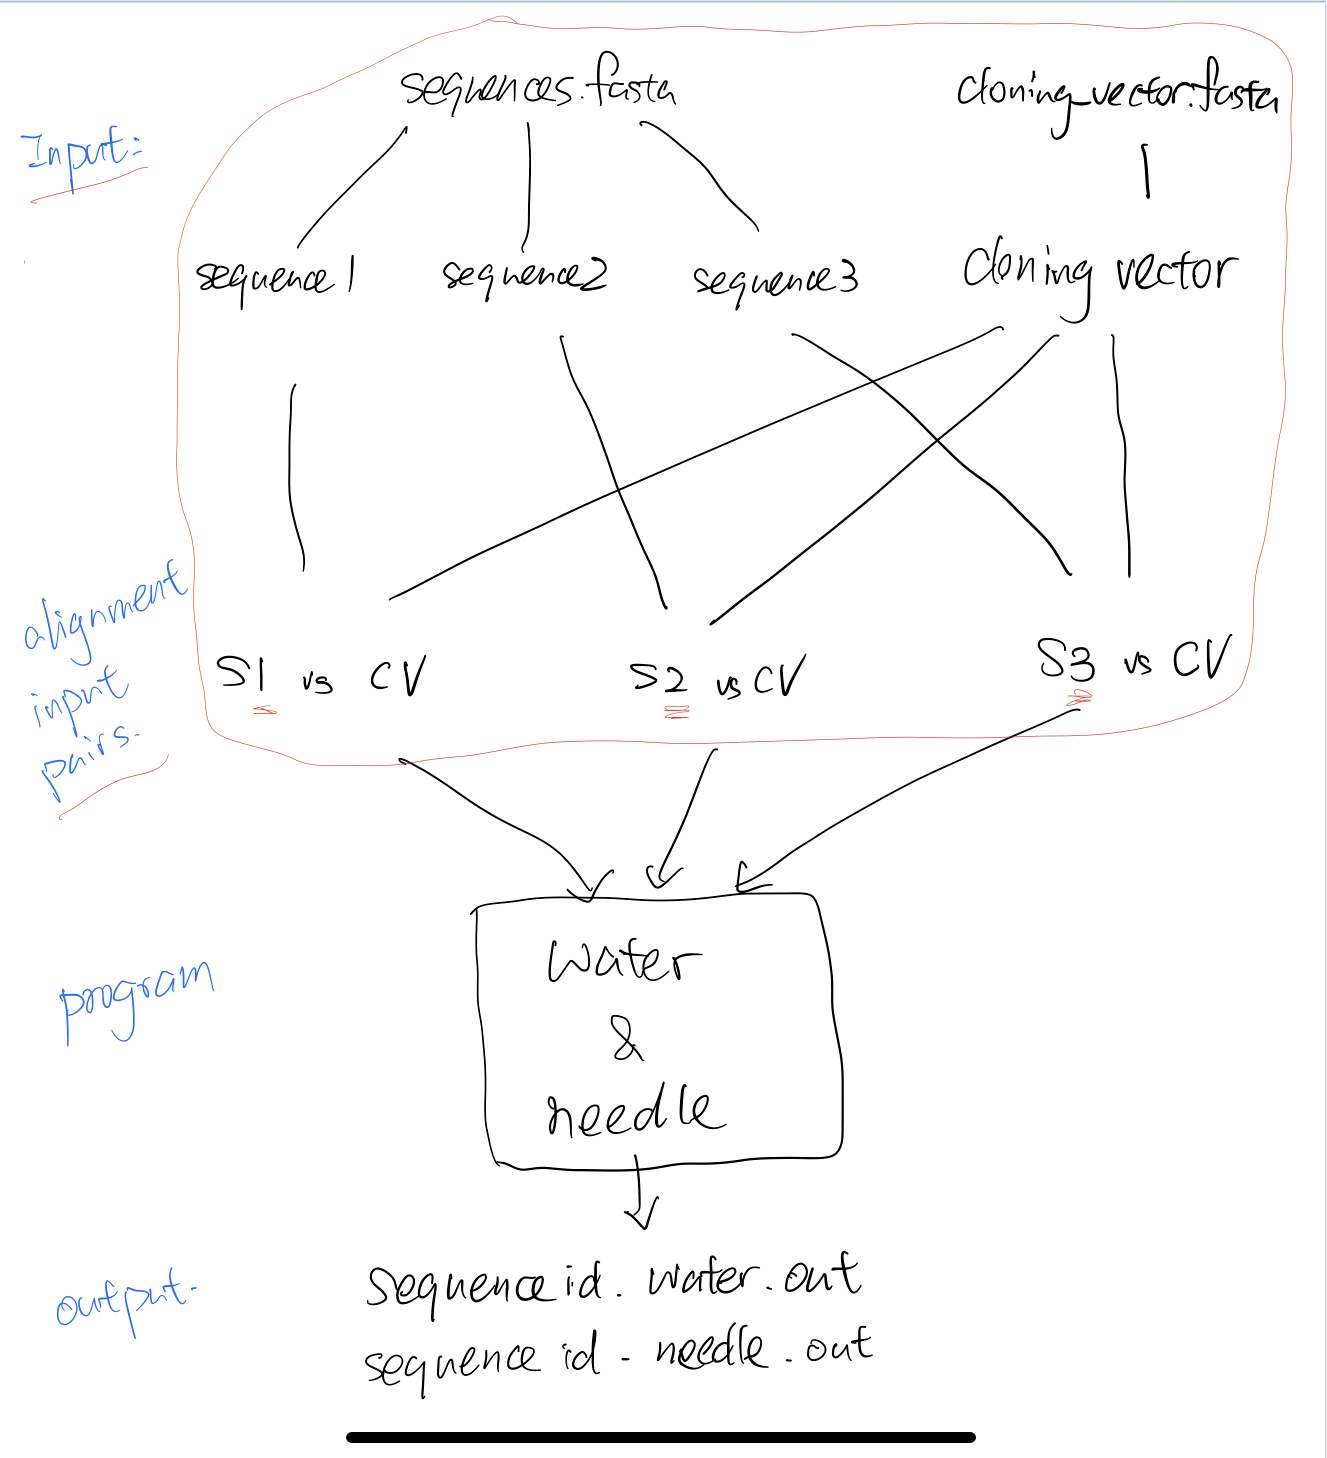 sequences.fasta
cloning_vector.fasta
Input:
sequence1
sequence2
sequence3
cloning vector
alignment
input
pairs.
S1 vs CV
S2 vs CV
S3 vs CV
program
water
&
needle
output.
sequence id. water.out
sequence id. needle.out